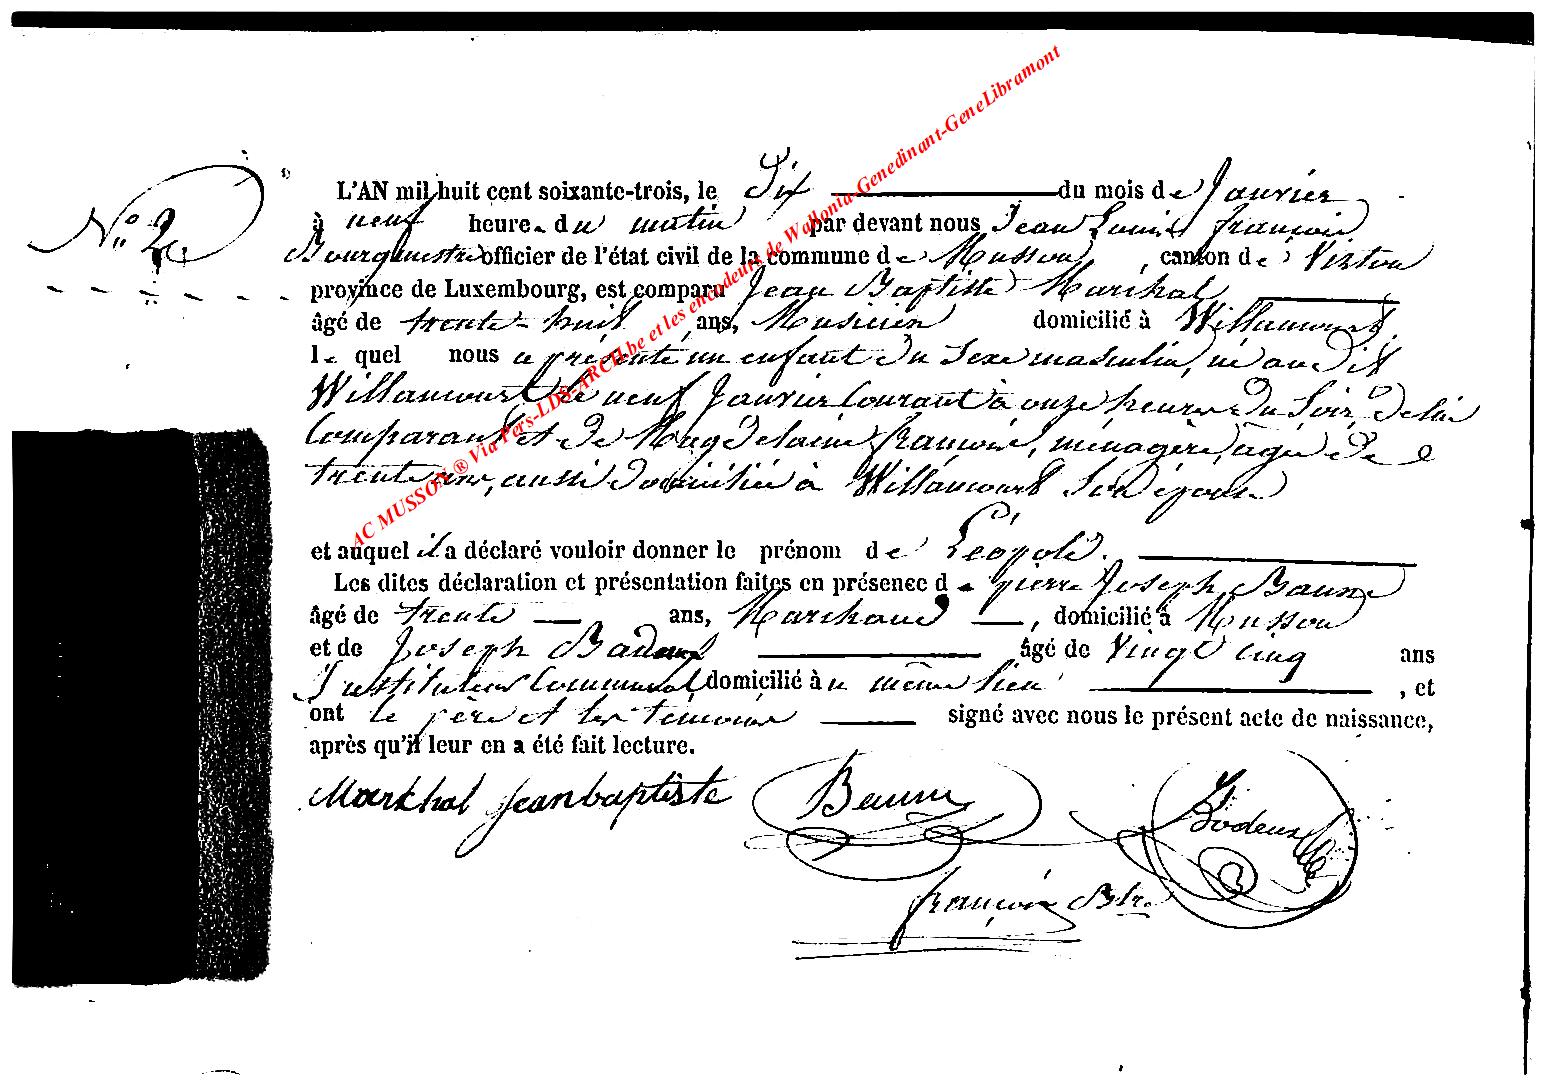 N° 2
L'AN mil huit cent soixante-trois, le Dix du mois de Janvier
à neuf heure du matin par devant nous Jean Louis françois
Bourgmestre officier de l'état civil de la commune de Musson, canton de Virton
province de Luxembourg, est comparu Jean Baptiste Maréchal
âgé de trente-huit ans, Musicien domicilié à Willancourt
lequel nous a présenté un enfant du sexe masculin, né au dit
Willancourt le neuf Janvier Courant à onze heures du Soir, de lui
Comparant et de Magdelaine françois, ménagère, agée de
trente ans, aussi domiciliée à Willancourt Son épouse
et auquel il a déclaré vouloir donner le prénom de Léopold.
Les dites déclaration et présentation faites en présence de pierre Joseph Baume
âgé de trente ans, Marchand, domicilié à Musson
et de Joseph âgé de Vingt cinq ans
Instituteur Communal, domicilié au même lieu, et
ont le père et les témoins signé avec nous le présent acte de naissance,
après qu'il leur en a été fait lecture.
Maréchal jeanbaptiste Baume Bodeux
françois
AC MUSSON ® Via Pers-LDS-ARCH.be et les encodeurs de Wallonia-Genedinant-GeneLibramont